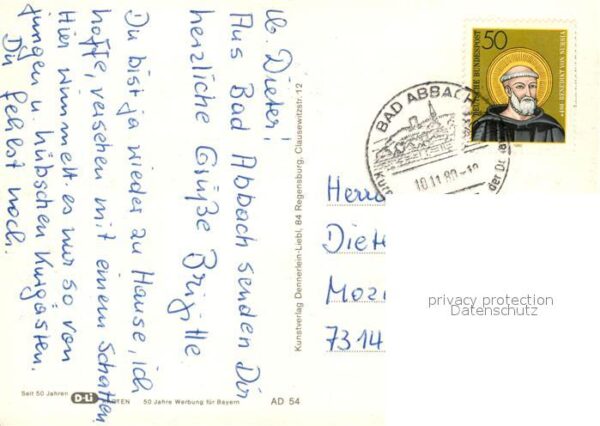 lb. Dieter!
Aus Bad Abbach senden Dir
herzliche Grüße Brigitte.
Du bist ja wieder zu Hause, ich
hoffe, versehen mit einem Schatten.
Hier wimmelt es nur so von
jungen u. hübschen Kurgästen.
Du fehlst noch.
Seit 50 Jahren D-Li KARTEN 50 Jahre Werbung für Bayern AD 54
Kunstverlag Dennerlein-Liebl, 84 Regensburg, Clausewitzstr. 12
50
DEUTSCHE BUNDESPOST
BENEDIKT VON NURSIA
BAD ABBACH
10.11.80-12
Herrn
Diete
Moz
7314
privacy protection
Datenschutz